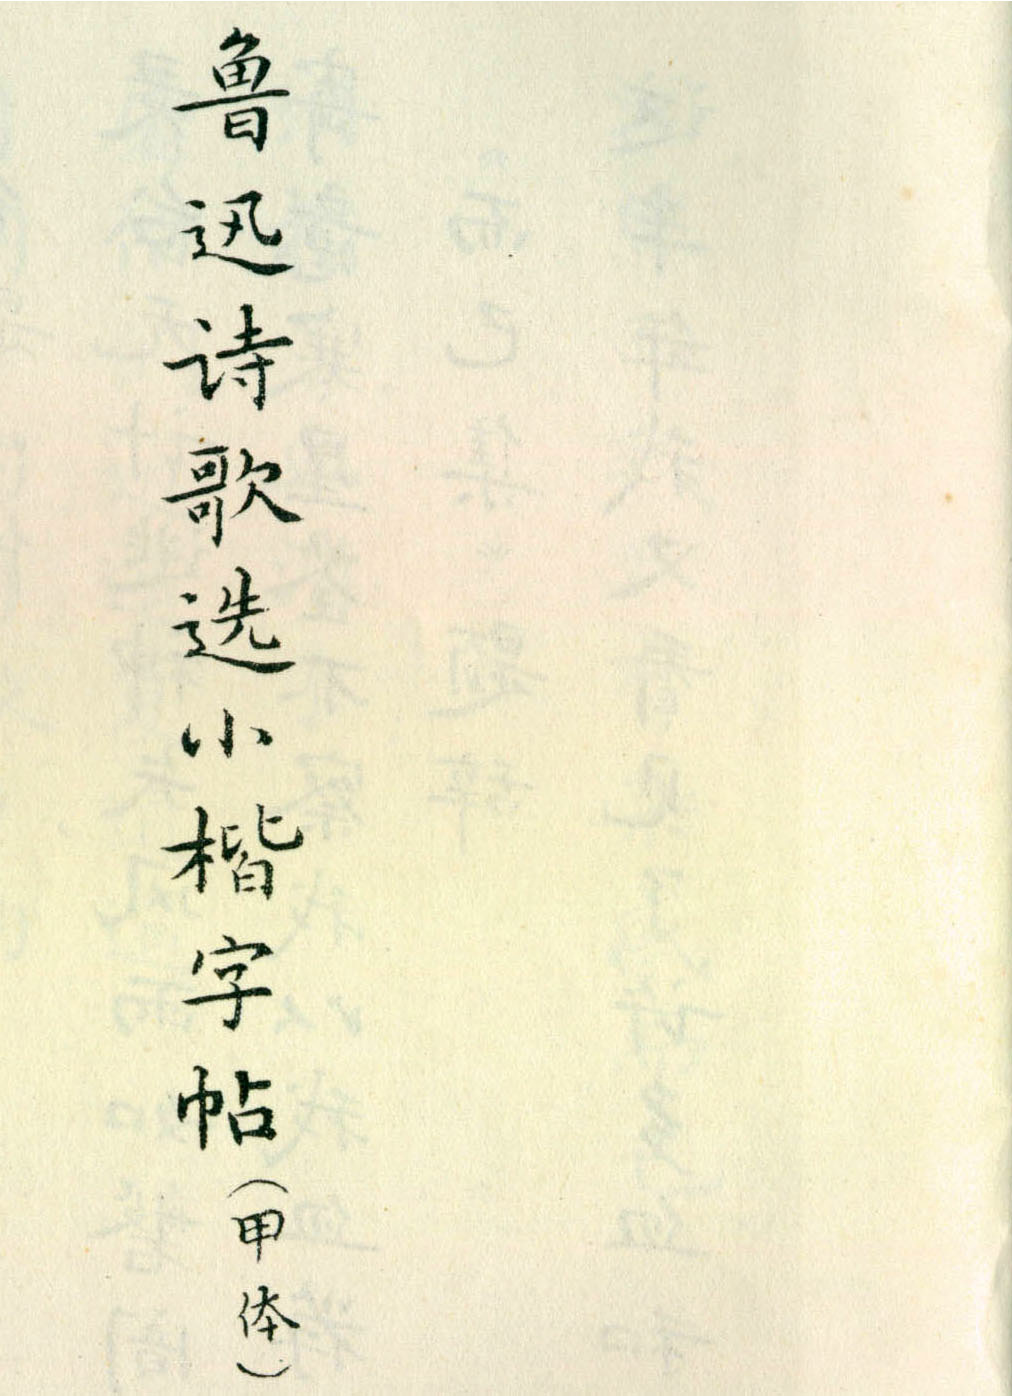 鲁迅诗歌选小楷字帖(甲体)